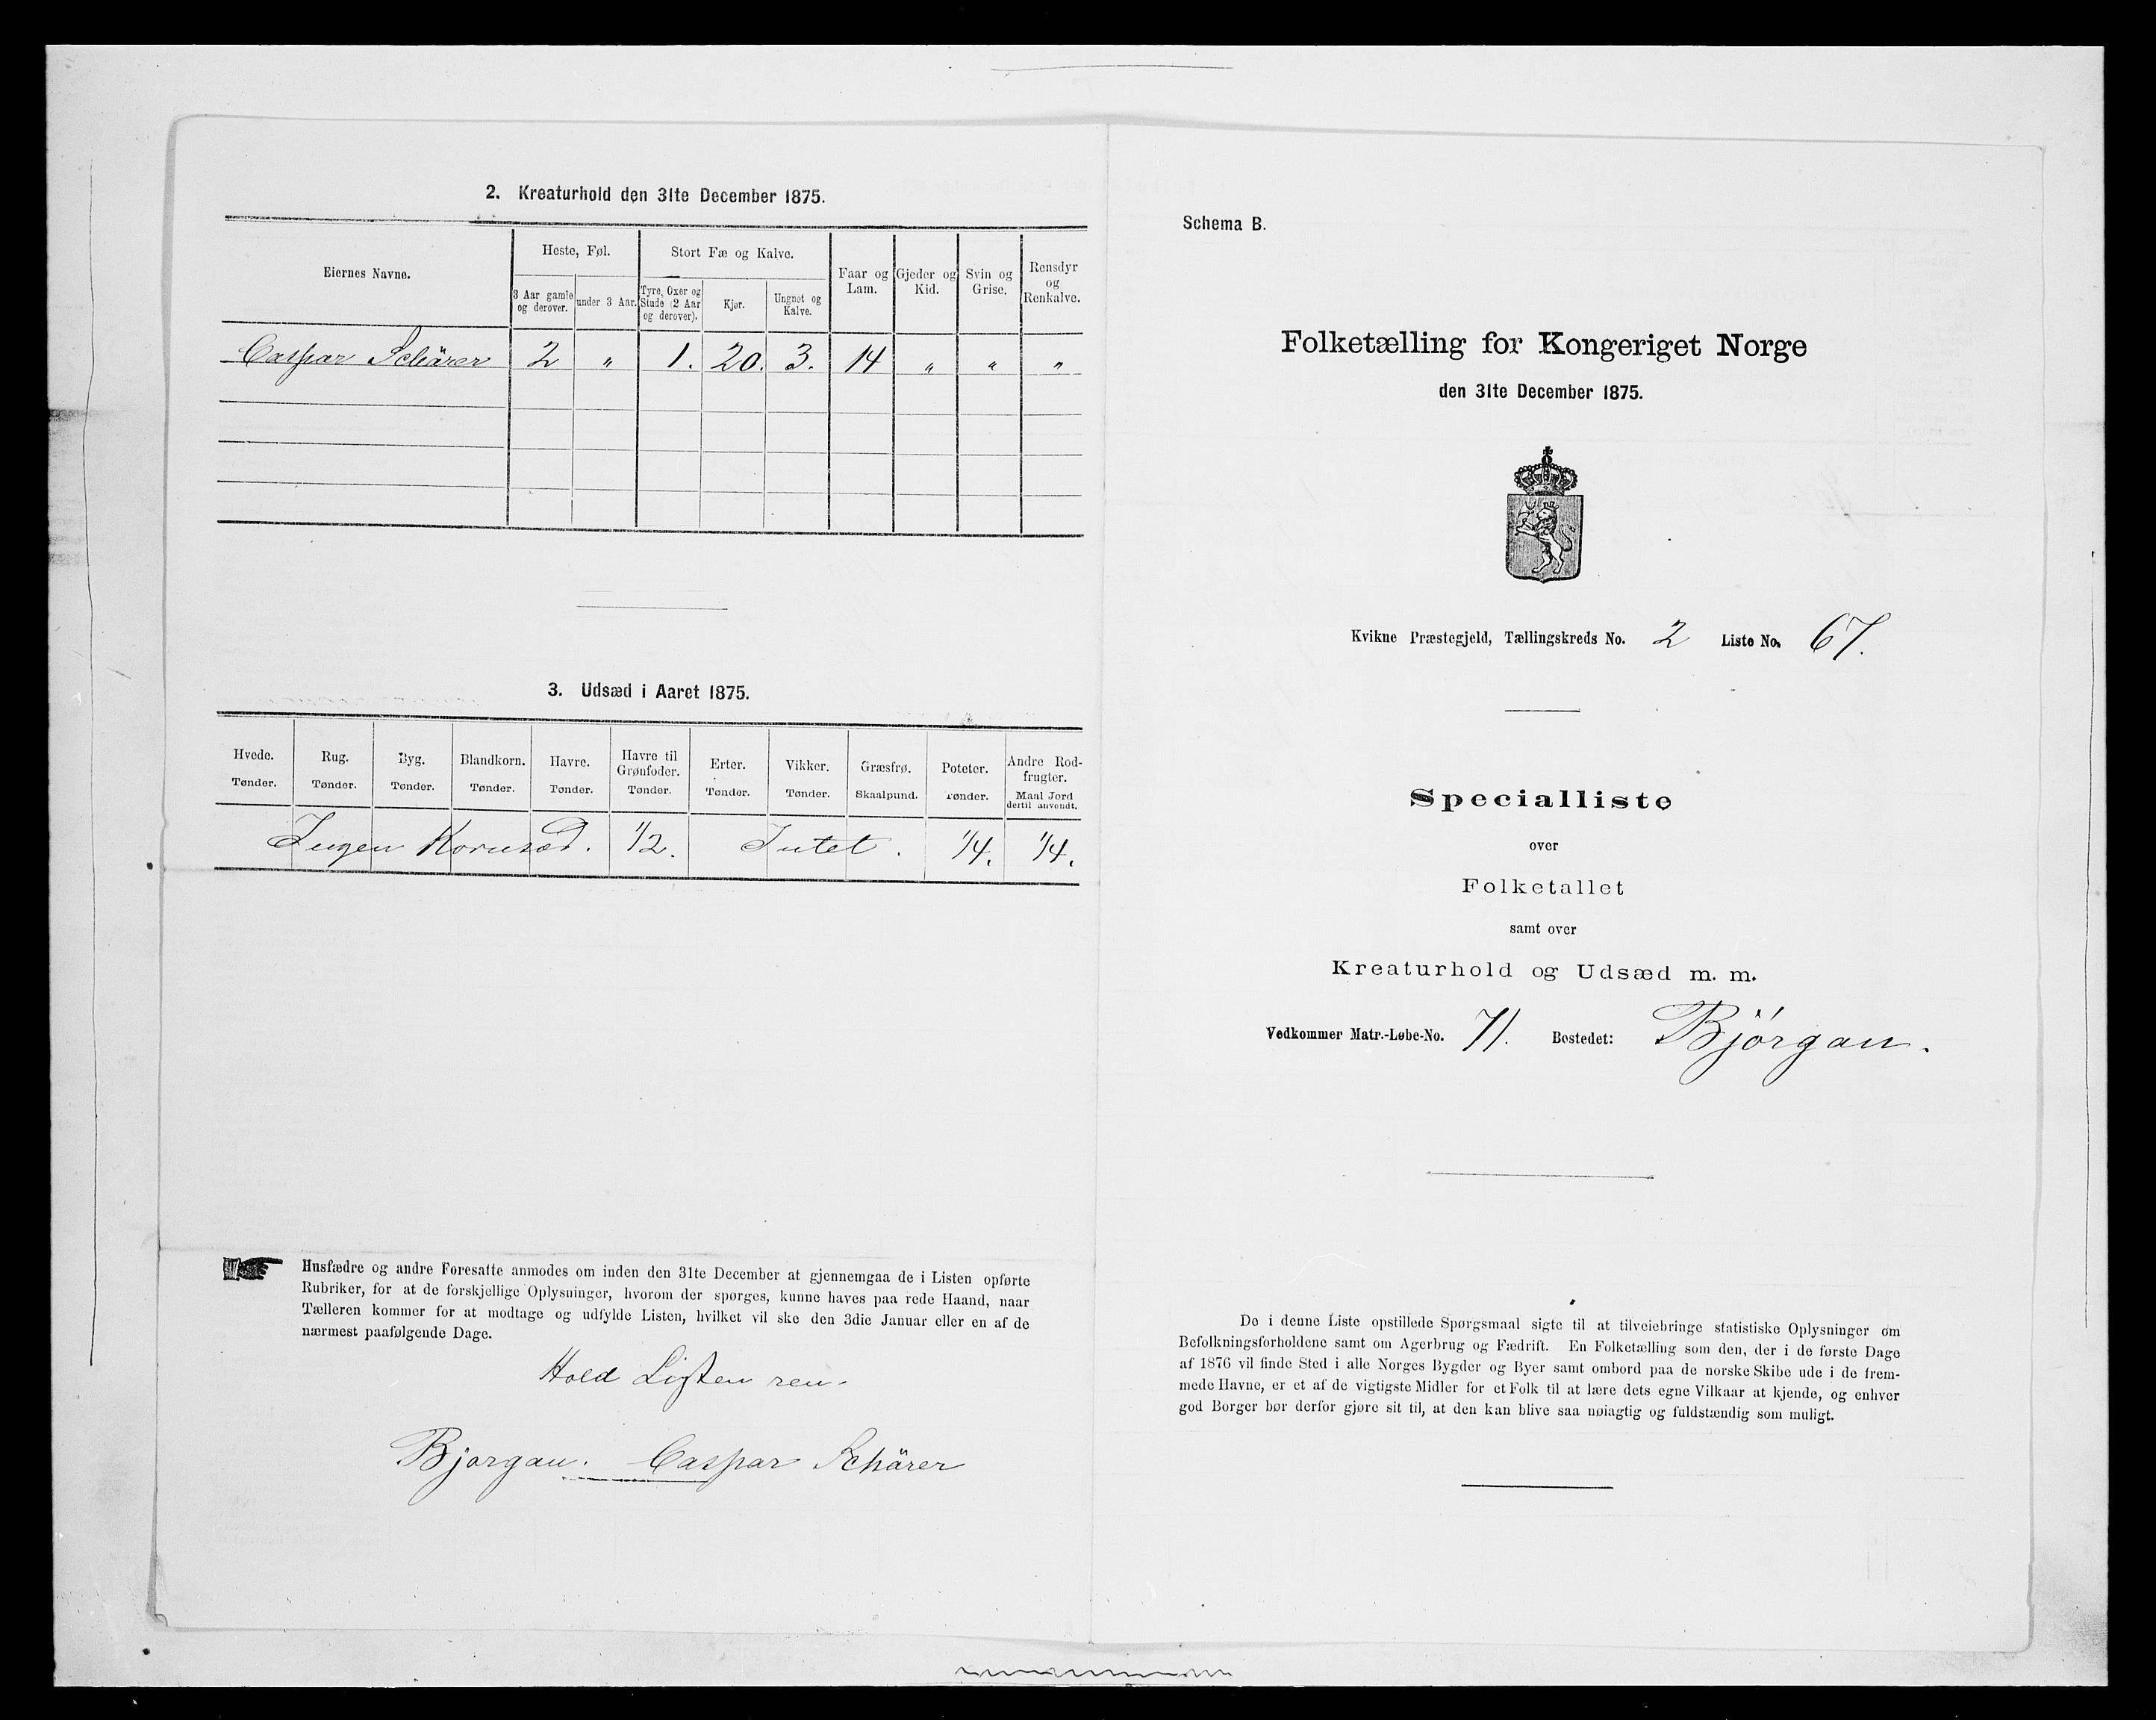 2. Kreaturhold den 31te December 1875.
Eiernes Navne.
Heste, Føl.
Stort Fæ og Kalve.
3 Aar gamle og derover.
under 3 Aar.
Tyre, Oxer og Stude (2 Aar og derover).
Kjør.
Ungnøt og Kalve.
Faar og Lam.
Gjeder og Kid.
Svin og Grise.
Rensdyr og Renkalve.
Caspar Schärer 2 " 1. 20. 3. 14 " " "
3. Udsæd i Aaret 1875.
Hvede. Tønder.
Rug. Tønder.
Byg. Tønder.
Blandkorn. Tønder.
Havre. Tønder.
Havre til Grønfoder. Tønder.
Erter. Tønder.
Vikker. Tønder.
Græsfrø. Skaalpund.
Poteter. Tønder.
Andre Rodfrugter. Maal Jord dertil anvendt.
Ingen Kornsæd. 1/2. Intet. 1/4. 1/4.
Husfædre og andre Foresatte anmodes om inden den 31te December at gjennemgaa de i Listen opførte
Rubriker, for at de forskjellige Oplysninger, hvorom der spørges, kunne haves paa rede Haand, naar
Tælleren kommer for at modtage og udfylde Listen, hvilket vil ske den 3die Januar eller en af de
nærmest paafølgende Dage.
Hold Listen ren.
Bjorgan. Caspar Schärer
Schema B.
Folketælling for Kongeriget Norge
den 31te December 1875.
Kvikne Præstegjeld, Tællingskreds No. 2 Liste No. 67.
Specialliste
over
Folketallet
samt over
Kreaturhold og Udsæd m. m.
Vedkommer Matr.-Løbe-No. 71. Bostedet: Bjørgan.
De i denne Liste opstillede Spørgsmaal sigte til at tilveiebringe statistiske Oplysninger om
Befolkningsforholdene samt om Agerbrug og Fædrift. En Folketælling som den, der i de første Dage
af 1876 vil finde Sted i alle Norges Bygder og Byer samt ombord paa de norske Skibe ude i de frem-
mede Havne, er et af de vigtigste Midler for et Folk til at lære dets egne Vilkaar at kjende, og enhver
god Borger bør derfor gjøre sit til, at den kan blive saa nøiagtig og fuldstændig som muligt.